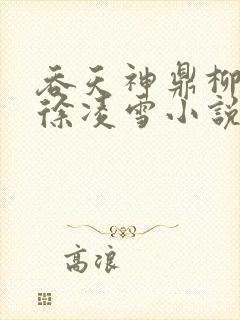 吞天神鼎柳
徐凌雪小說
高浪